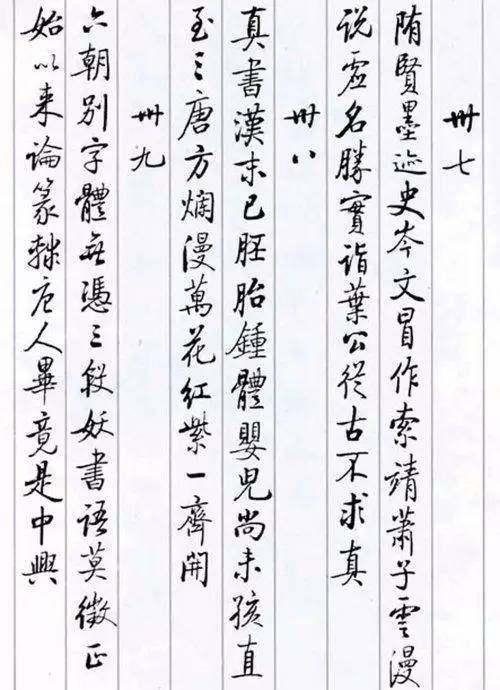 卌七
隋賢墨迹史岑文冒作索靖蕭子雲漫
说虚名勝實詣葉公從古不求真
卌八
真書漢末已胚胎鍾體嬰兒尚未孩直
至三唐方爛漫萬花红紫一齊開
卌九
六朝别字體無憑三段妖書語莫徵正
始以来論篆隸唐人畢竟是中興